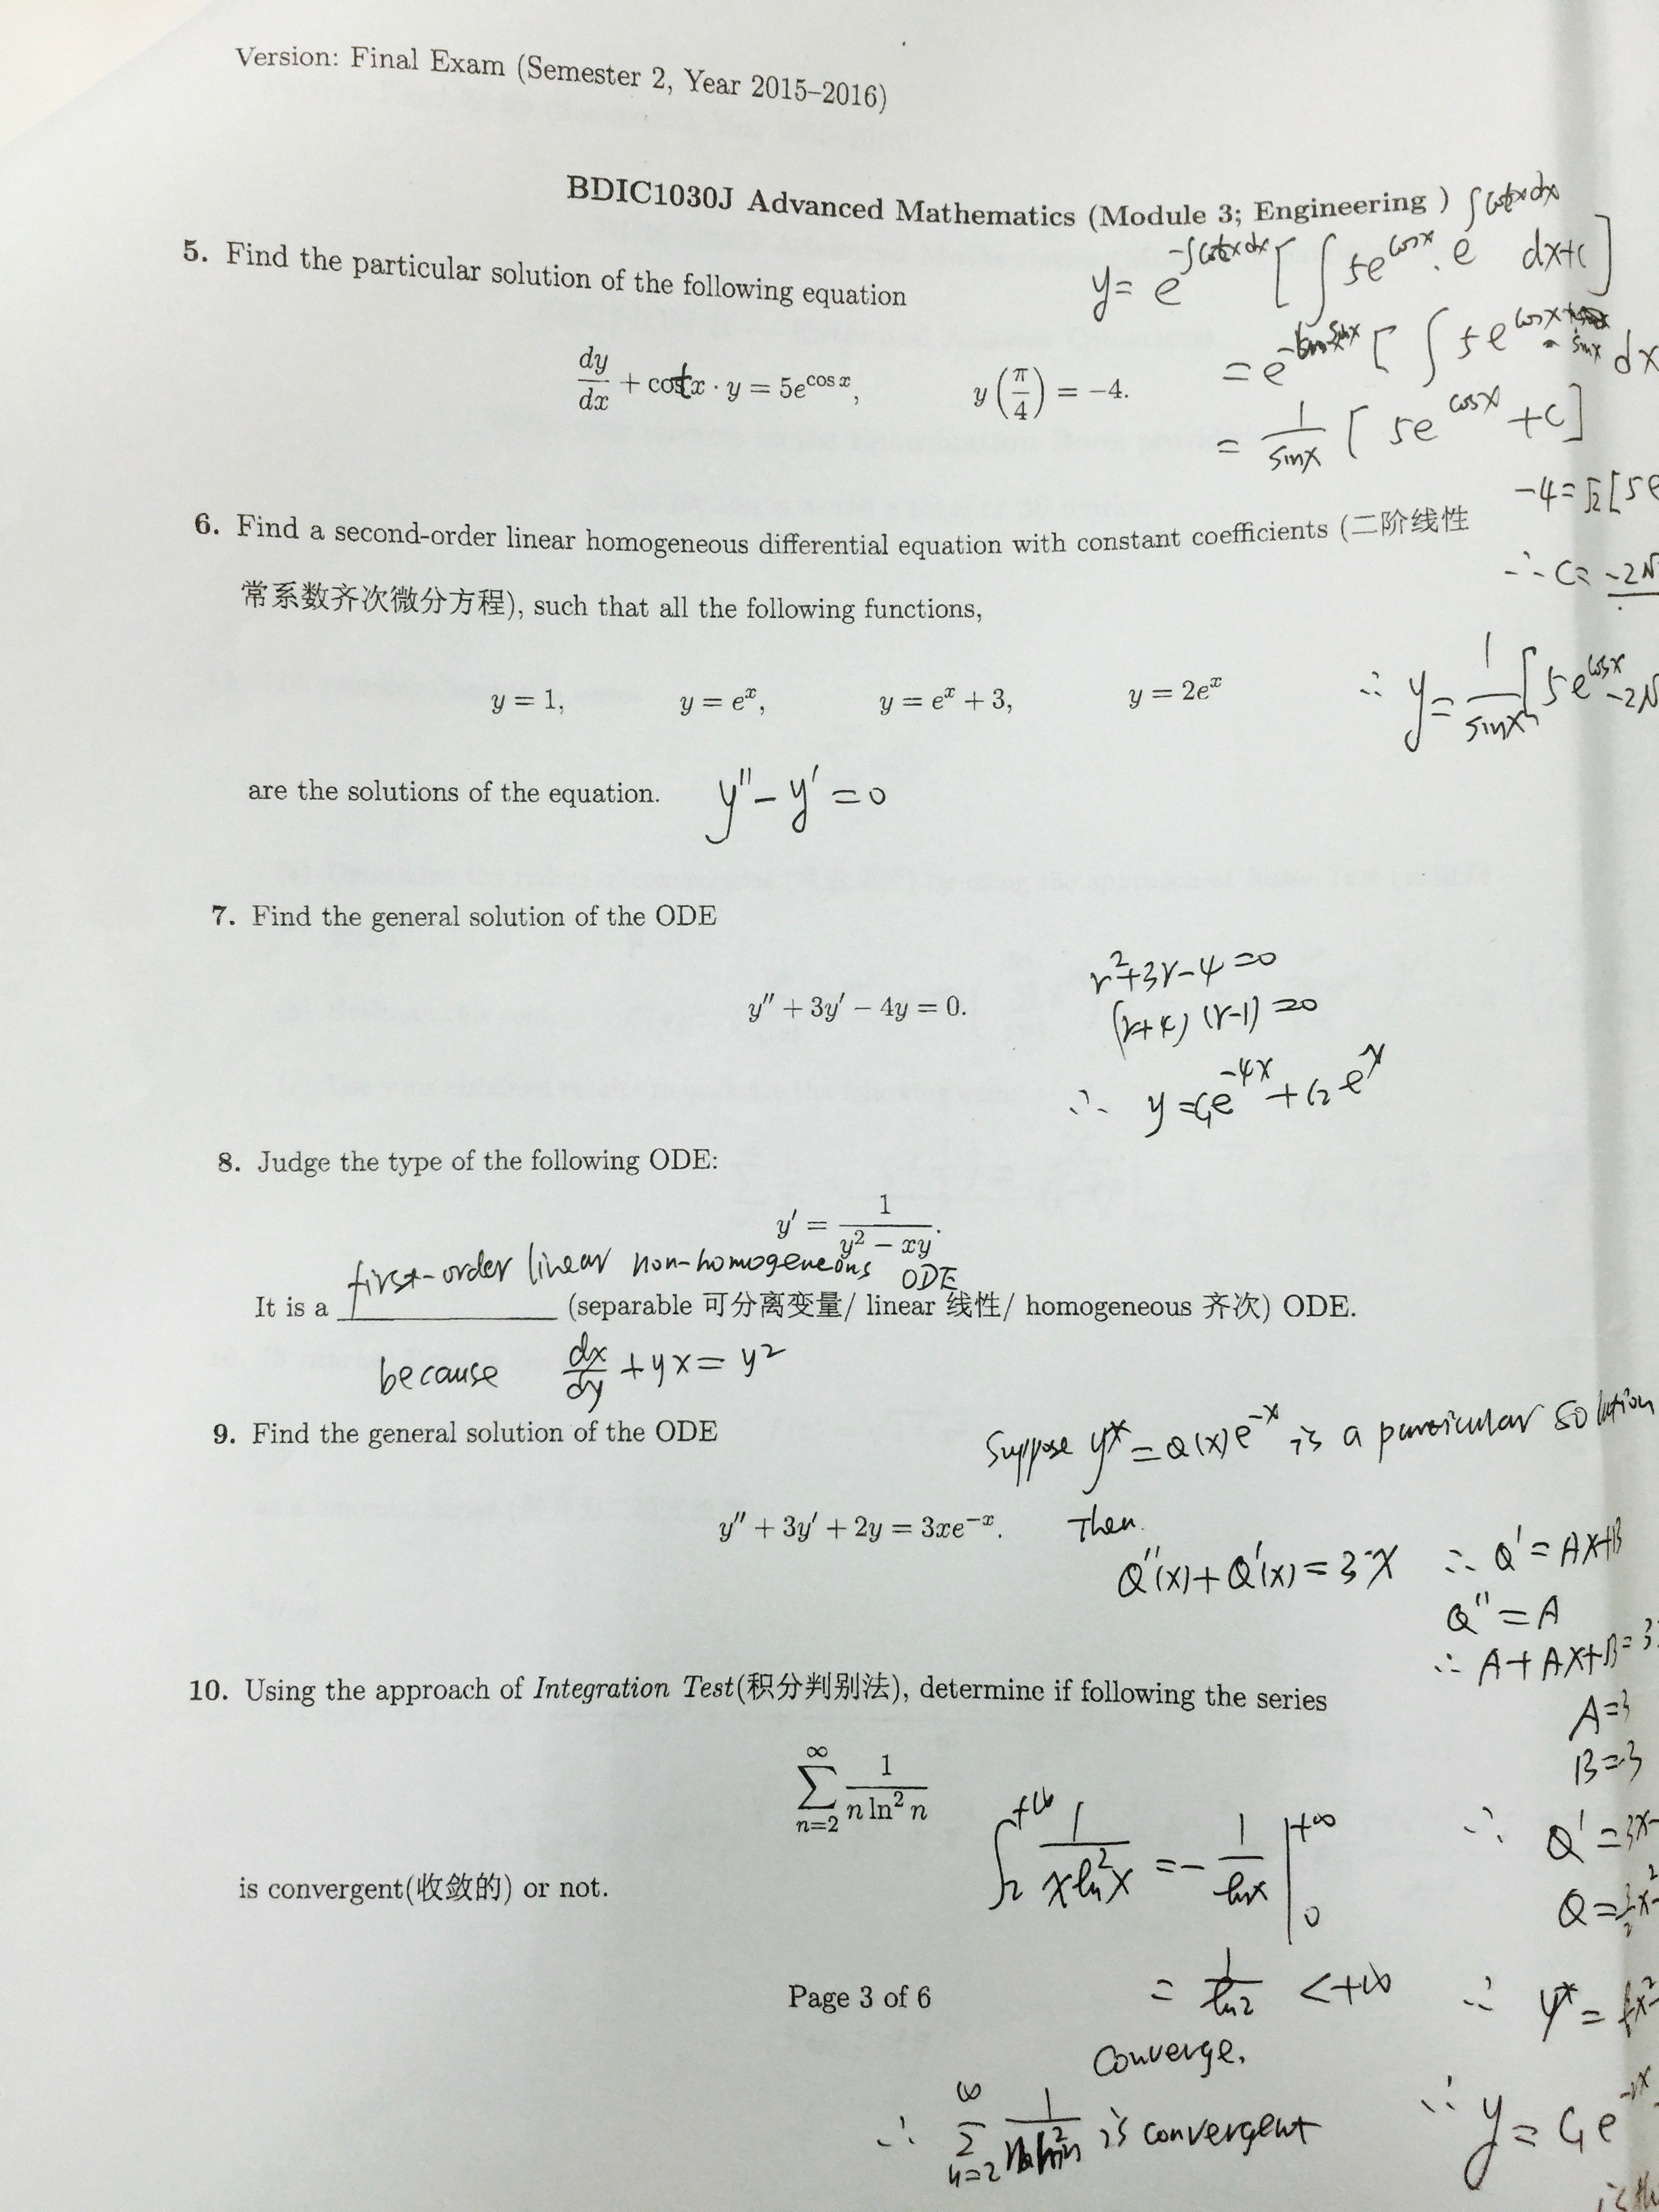 Version: Final Exam (Semester 2, Year 2015–2016)
BDIC1030J Advanced Mathematics (Module 3; Engineering )
5. Find the particular solution of the following equation
y = e^{-∫cotxdx} [ ∫ 5e^{cosx} · e^{∫cotxdx} dx+c ]
dy/dx + cotx · y = 5e^{cos x}, y(π/4) = −4.
= 1/sinx [ 5e^{cosx} + c ]
-4 = √2 [ 5e
6. Find a second-order linear homogeneous differential equation with constant coefficients (二阶线性
常系数齐次微分方程), such that all the following functions,
∴ C = -2√
y = 1, y = e^x, y = e^x + 3, y = 2e^x
∴ y = 1/sinx [ 5e^{cosx} -2√
are the solutions of the equation. y'' - y' = 0
7. Find the general solution of the ODE
r²+3r-4=0
y'' + 3y' − 4y = 0.
(r+4) (r-1) = 0
∴ y = C₁e^{-4x} + C₂e^x
8. Judge the type of the following ODE:
y' = 1/(y² − xy).
first-order linear non-homogeneous ODE
It is a ____________ (separable 可分离变量/ linear 线性/ homogeneous 齐次) ODE.
because dx/dy + yx = y²
9. Find the general solution of the ODE
Suppose y* = Q(x)e^{-x} is a particular solution
y'' + 3y' + 2y = 3xe^{−x}. Then
Q''(x) + Q'(x) = 3x ∴ Q' = Ax+B
Q'' = A
∴ A + Ax+B = 3
10. Using the approach of Integration Test(积分判别法), determine if following the series
A=3
B=-3
∑_{n=2}^{∞} 1/(n ln² n)
∫₂^{+∞} 1/(x ln²x) = - 1/lnx |₀^{+∞}
∴ Q' = 3x-
is convergent(收敛的) or not.
Q = 3/2 x²-
Page 3 of 6
= 1/ln2 < +∞
∴ y* =
Converge.
∴ ∑_{n=2}^{∞} is convergent
∴ y = C₁e